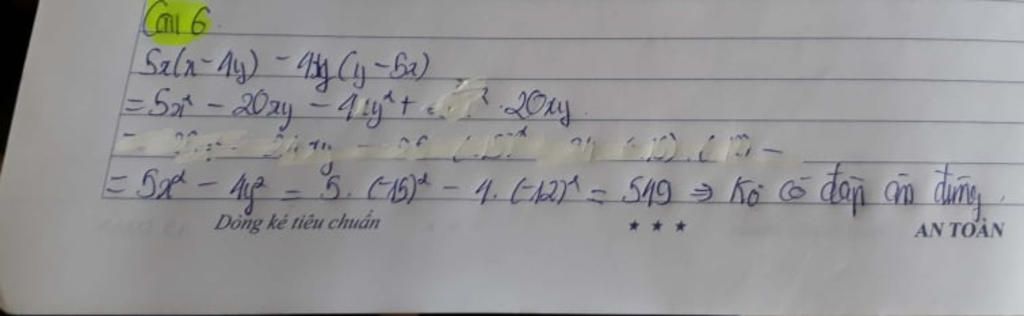 Câu 6
5x(x-4y) - 4y(y-5x)
= 5x² - 20xy - 4y² + 20xy
= 5x² - 4y² = 5.(-15)² - 4.(-12)² = 549 ⇒ Ko có đáp án đúng.
Dòng kẻ tiêu chuẩn ★ ★ ★ AN TOÀN